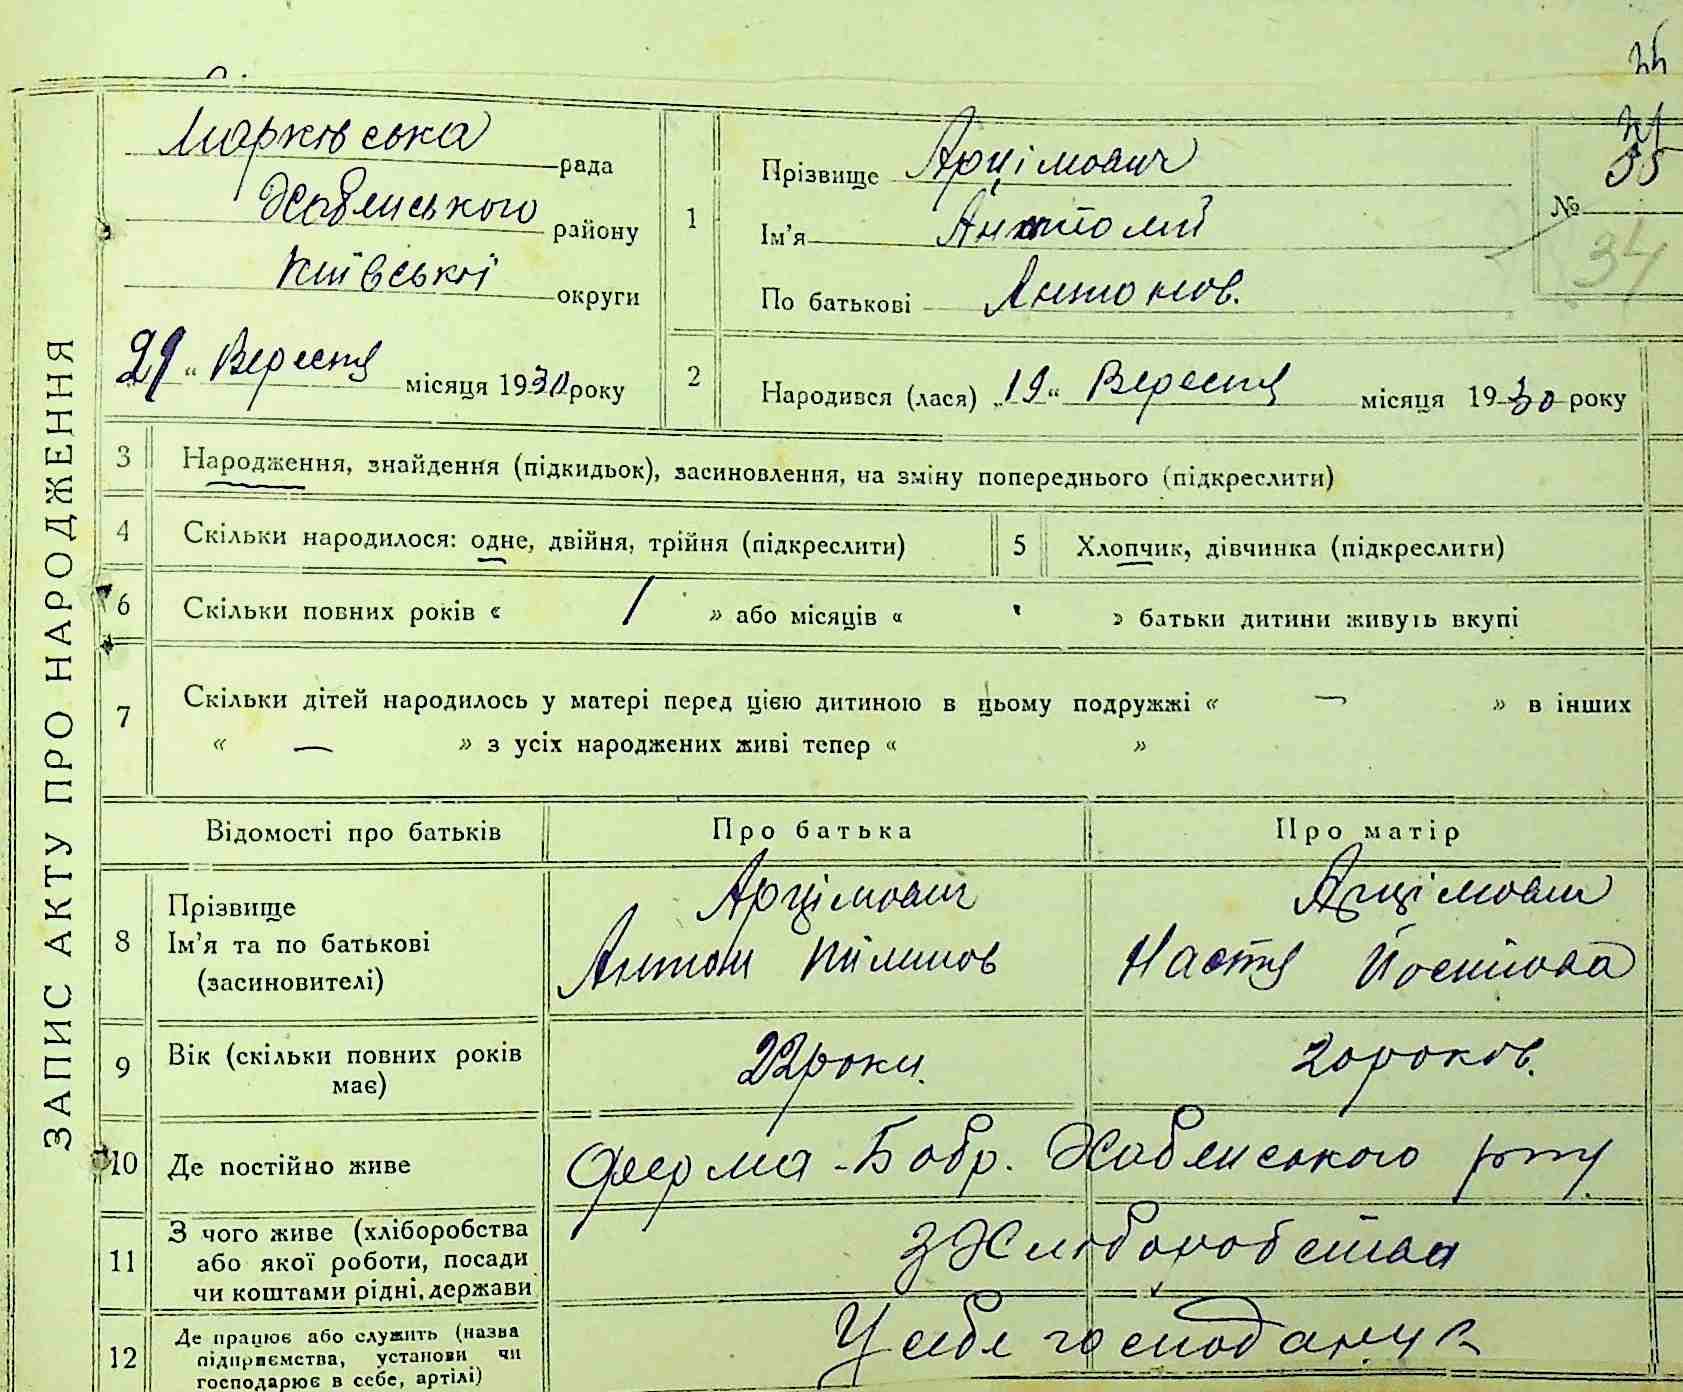 35
31
55
№
34
ЗАПИС АКТУ ПРО НАРОДЖЕННЯ
Марківська рада
Хабенського району
Київської округи
29 " Вересня місяця 1930 року
1
Прізвище Арцімович
Ім'я Анатолій
По батькові Антонов.
2
Народився (лася) „19“ Вересня місяця 1930 року
3 Народження, знайдення (підкидьок), засиновлення, на зміну попереднього (підкреслити)
4 Скільки народилося: одне, двійня, трійня (підкреслити)
5 Хлопчик, дівчинка (підкреслити)
6 Скільки повних років « 1 » або місяців « » батьки дитини живуть вкупі
7 Скільки дітей народилось у матері перед цією дитиною в цьому подружжі « — » в інших
« — » з усіх народжених живі тепер « »
Відомості про батьків
Про батька
Про матір
8 Прізвище
Ім'я та по батькові
(засиновителі)
Арцімович
Антон Пилипов
Арцімович
Настя Йосипова
9 Вік (скільки повних років
має)
22 роки.
20 років.
10 Де постійно живе
Ферма-Бобр. Хабенського р-ну
11 З чого живе (хліборобства
або якої роботи, посади
чи коштами рідні, держави
З Хліборобства
12 Де працює або служить (назва
підприємства, установи чи
господарює в себе, артілі)
У себе